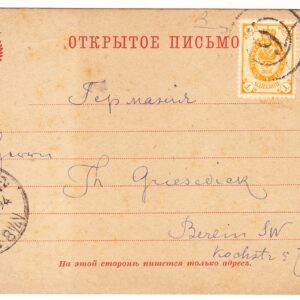 ОТКРЫТОЕ ПИСЬМО
Германія
Herrn
Th Griesedieck
Berlin SW
Kochstr 5
На этой сторонѣ пишется только адресъ.